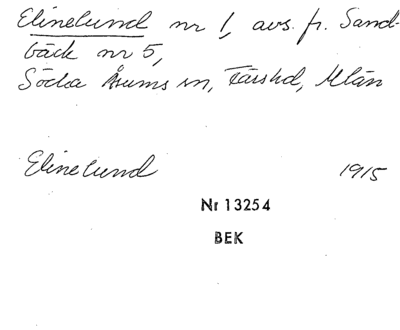 Elinelund nr 1, avs. fr. Sand-
bäck nr 5,
Södra Åsums sn, Färshd, Mlän
Elinelund 1915
Nr 13254
BEK